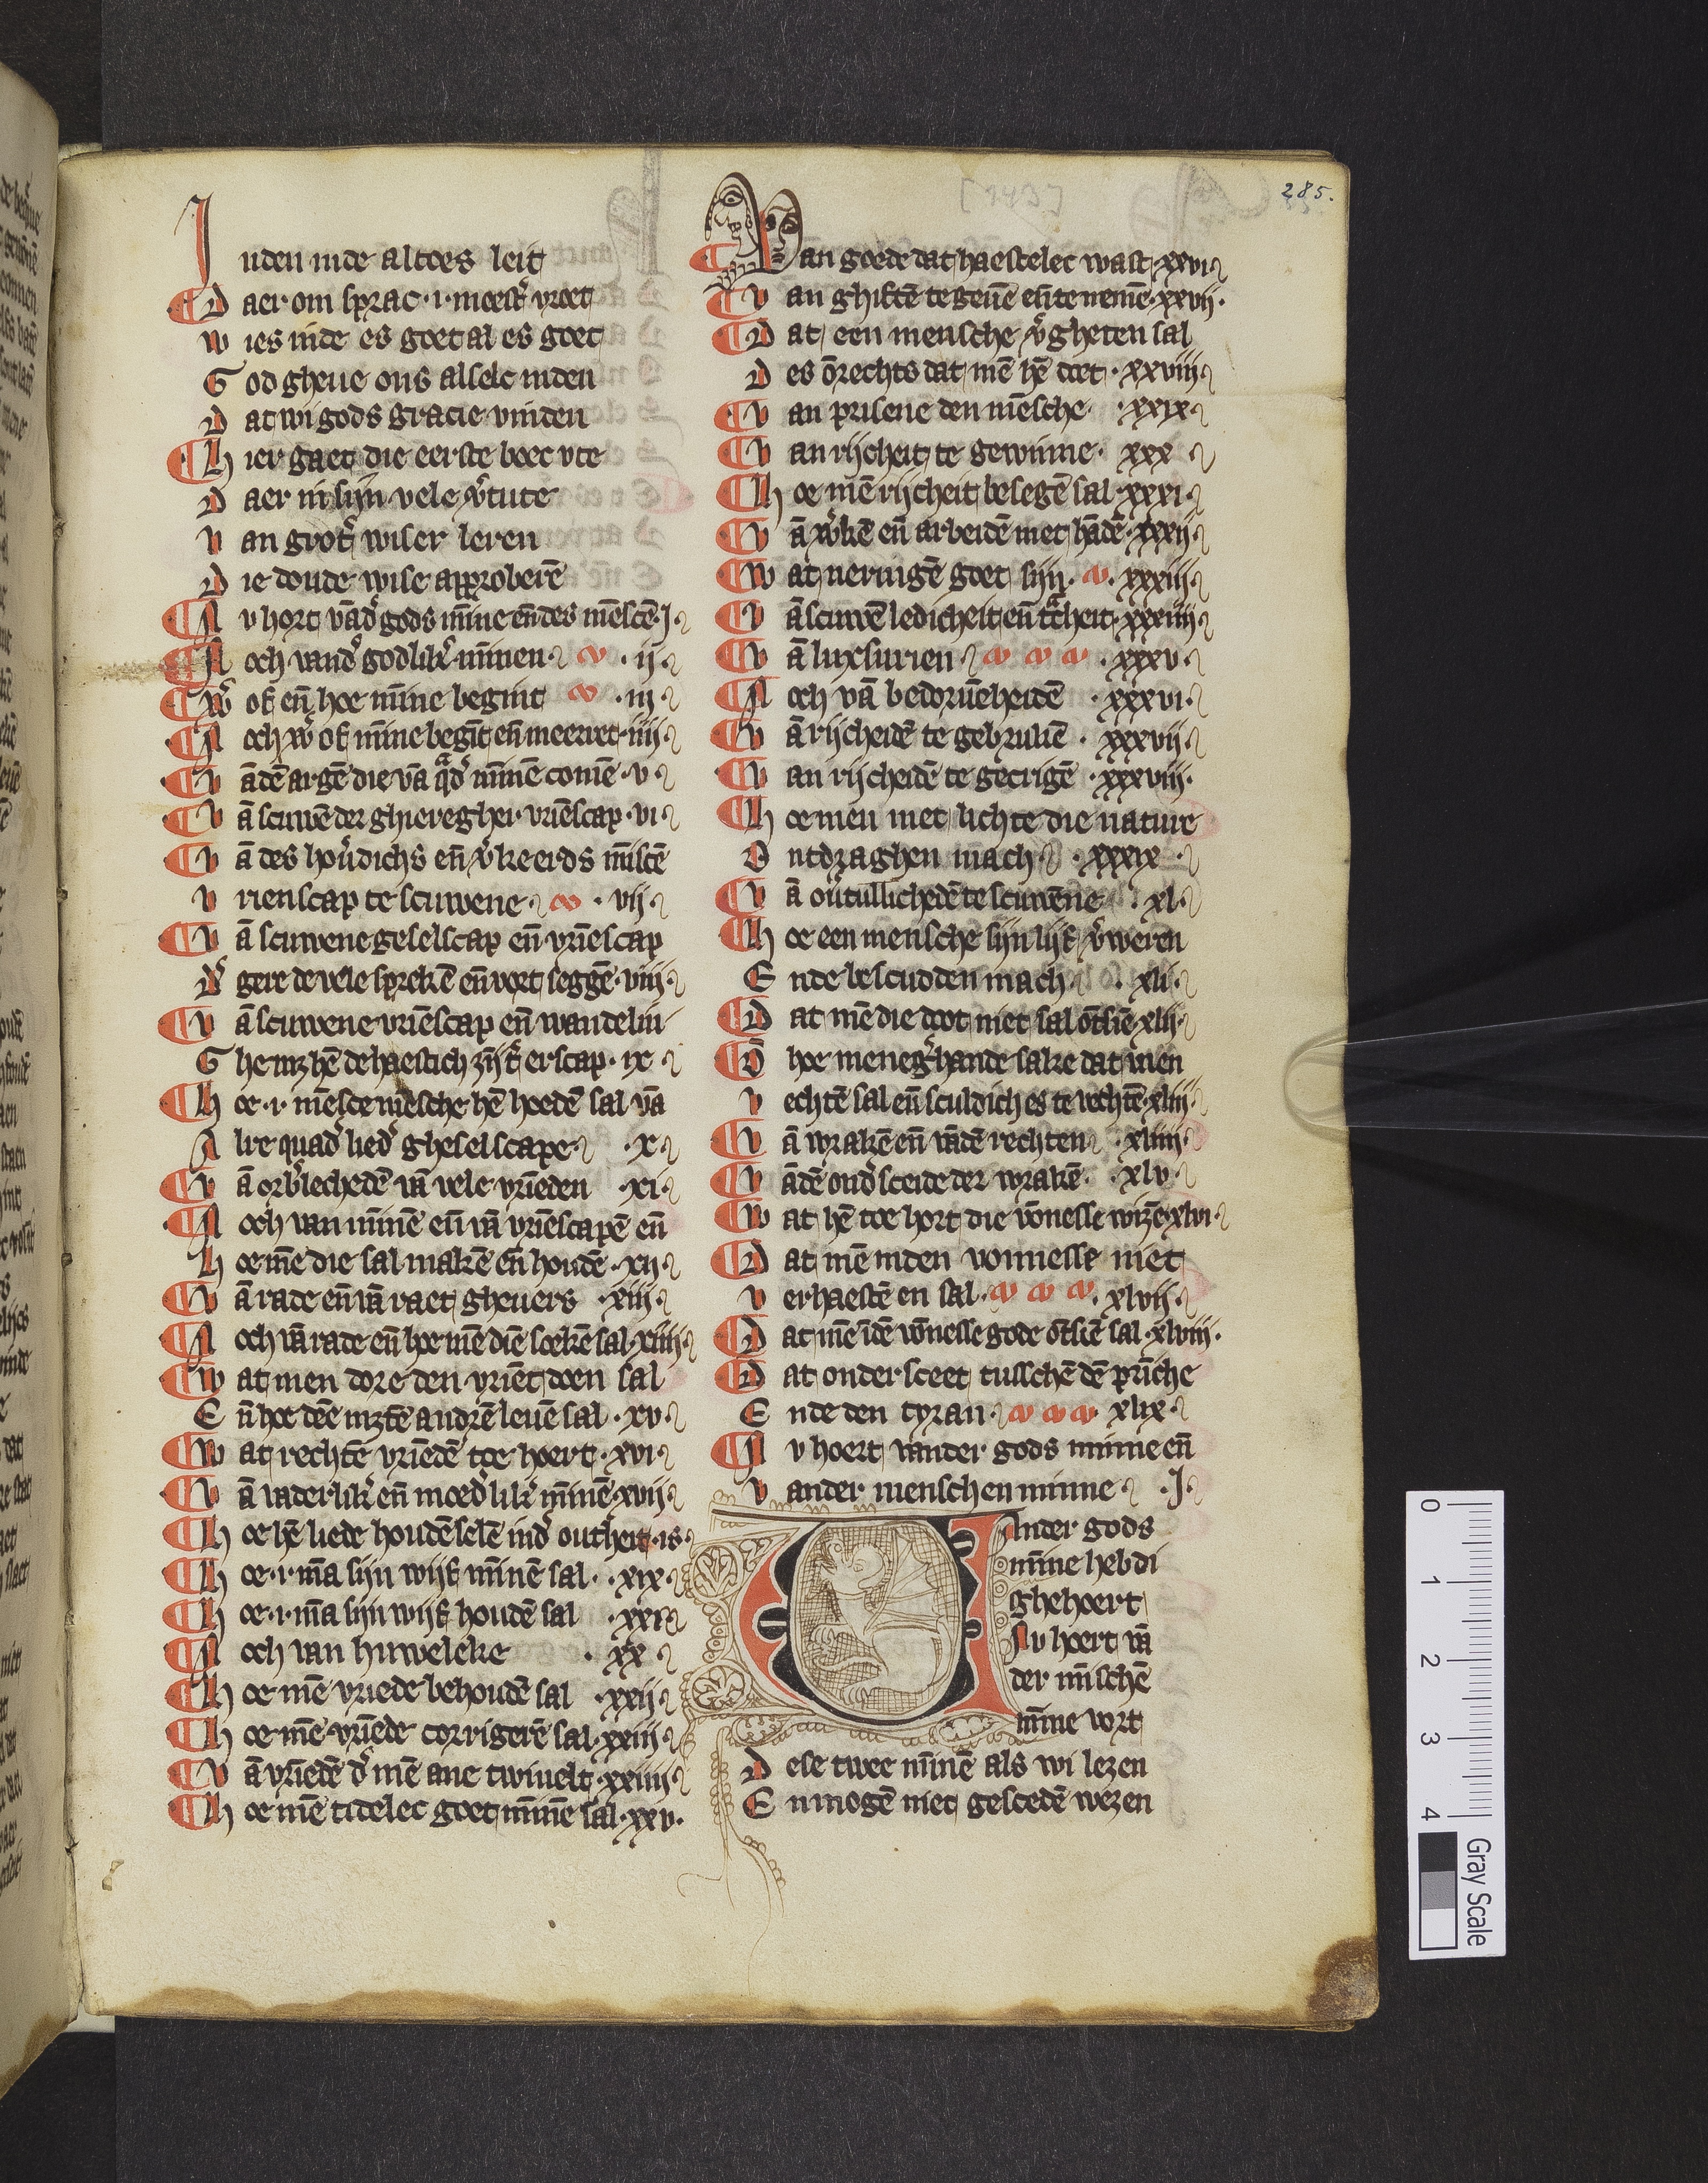 285.
[143]
Inden inde altoes leit
D aer om sprac ·i· moest̉ vroet
W ies inde es goet al es goet
G od gheue ons alselc inden
D at wi gods gracie vinden
H ier gaet die eerste boec vte
D aer in sijn vele v̉tute
V an grot̉ wiser leren
D ie doude wise approberē
N v hort vād̉ gods mīne en̄ des mēscē ·J·
N och vand̉ godlik̉ mīnen · ij·
W̉ of en̄ hoe mīne begint · iij·
N och w̉ of mīne begīt en̄ meerret ·iiij·
V ā dē argē die vā q̄d̉ mīnē comē ·v·
V ā scuwē der ghieregher vriēscap ·vi·
V ā des hoủdichs en̄ v̉keerds mīscē
V rienscap te scuwene · vij·
V ā scuwene geselscap en̄ vriēscap
D̉ gere de vele sprekē en̄ vort seggē ·viij·
V ā scuwene vriēscap en̄ wandelin
G he mz hē de haestich zijt erscap · ix
H oe ·i· mēsce mēsche hē hoedē sal vā
A lre quad̉ lied̉ gheselscape · x·
V ā orb̉lechedē vā vele vriēden ·xi·
N och van mīnē en̄ vā vriēscapē en̄
H oe mē die sal makē en̄ houdē ·xij·
V ā rade en̄ vā raet gheuers ·xiij·
N och vā rade en̄ hoe mē diē soekē sal ·xiiij·
W at men dore den vriēt doen sal
E n̄ hoe dēe mztē andrē leuē sal ·xv·
W at rechtē vriēdē toe hoert ·xvi·
V ā vaderlik̉ en̄ moed̉lik̉ mīnē ·xvij·
H oe hē liede houdē selē ind̉ outheit ·is·
H oe ·i· mā sijn wijf mīnē sal · xix·
H oe ·i· mā sijn wijf houdē sal ·xxi·
N och van huweleke · xx ·
H oe mē vriede behoudē sal ·xxij·
H oe mē vriēde corrigerē sal ·xxiij·
V ā vriēdē d̉ mē ane twiuelt ·xxiiij·
H oe mē tidelec goet mīnē sal ·xxv·
V an goede dat haestelec wast ·xxvi·
V an ghiftē te geuē en̄ te nemē ·xxvij·
D at een mensche v̉gheten sal
D es ōrechts dat mē hē doet · xxviij·
V an prisene den mēsche ·xxix·
V an rijcheit te gewinne · xxx
H oe mē rijcheit besegē sal ·xxxi·
V ā w̉kē en̄ arbeidē met hādē ·xxxij·
W at neringē goet sijn · xxxiij·
V ā scuwē ledicheit en̄ t̄cheit ·xxxiiij·
V ā luxsurien · xxxv·
N och vā bedoruēheidē · xxxvi·
V ā rijcheidē te gebruuē · xxxvij·
V an rijcheidē te gecrigē ·xxxviij·
H oe men met lichte die nature
O ntdraghen mach · xxxix ·
V ā oủtullichedē te scuwēne · xl·
H oe een mensche sijn lijf v̉weren
E nde bescudden mach · xli·
D at mē die doot niet sal ōtsiē ·xlij·
D̄ hoe meneg̉hande sake dat men
V echtē sal en̄ sculdich es te vechtē ·xliij·
V ā wrakē en̄ vādē rechten · xliiij·
V ādē ond̉sceide der wrakē · xlv·
W at hē toe hort die vōnesse wizē ·xlvi·
D at mē inden vonnesse niet
V erhaestē en sal · xlvij·
D at mē īdē vōnesse gode ōtsiē sal ·xlviij·
D at onder sceet tusschē dē prīche
E nde den tyran · xlix·
N v hoert vander gods minne en̄
V ander menschen minne · J·
Vander gods
mīne hebdi
ghehoert
Nv hoert vā
der mīschē
mīne vort
D ese twee mīnē als wi lezen
E nmogē niet gescedē wezen
0 1 2 3 4
Gray Scale